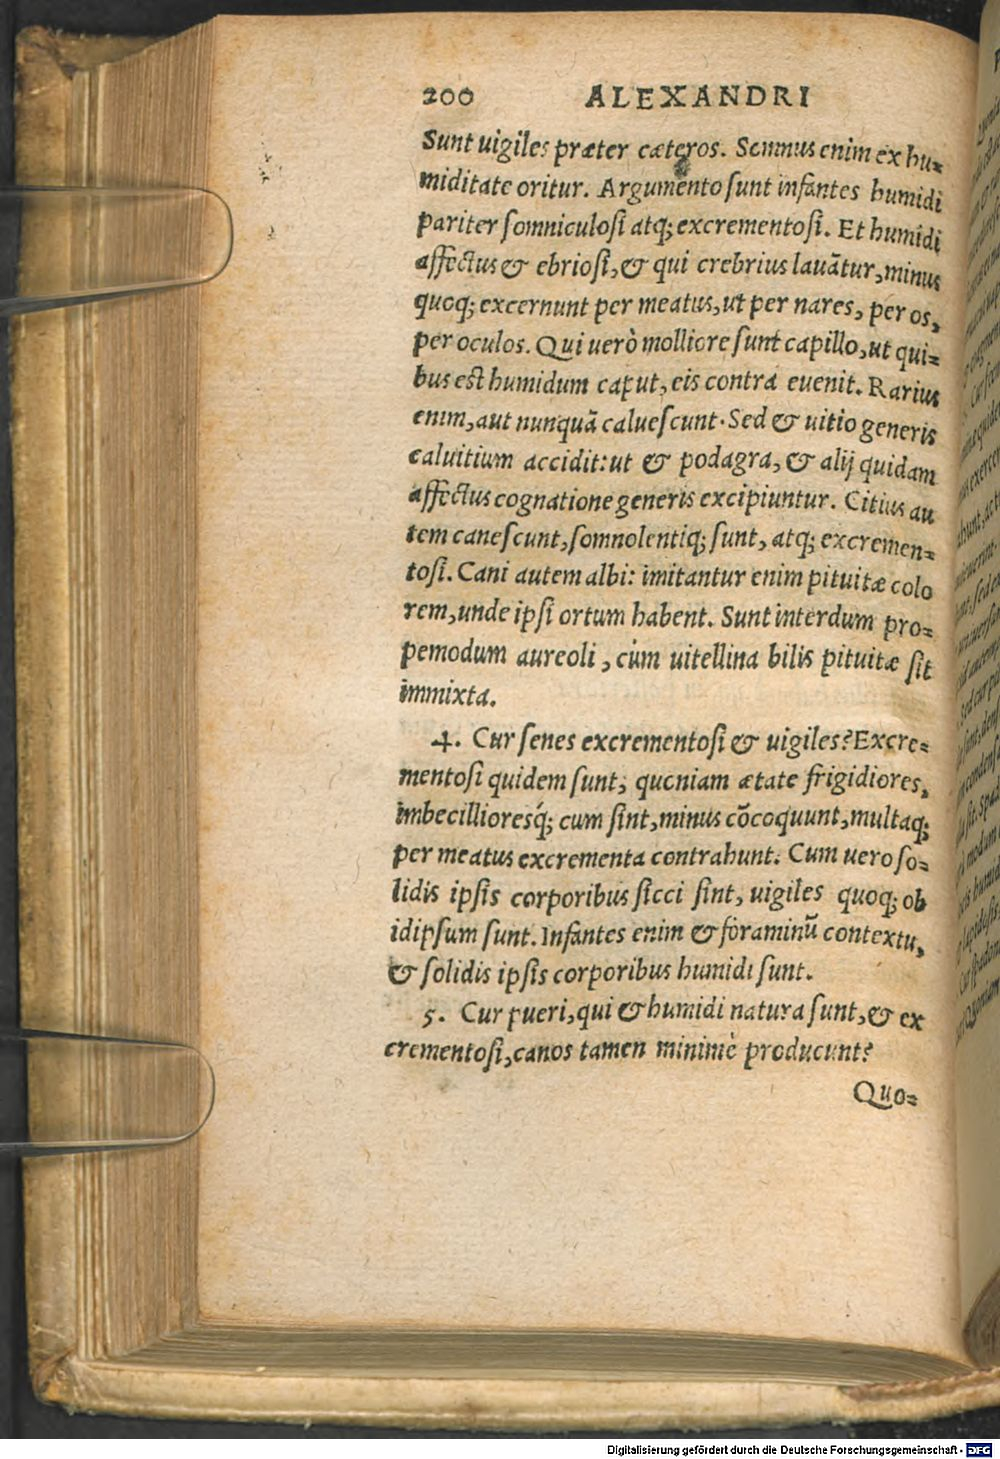 200 ALEXANDRI
Sunt uigiles præter cæteros. Somnus enim ex hu=
miditate oritur. Argumento ſunt infantes humidi
pariter ſomniculoſi atq; excrementoſi. Et humidi
affectus & ebrioſi, & qui crebrius lauãtur, minus
quoq; excernunt per meatus, ut per nares, per os,
per oculos. Qui uerò molliore ſunt capillo, ut qui=
bus est humidum caput, eis contra euenit. Rarius
enim, aut nunquã calueſcunt. Sed & uitio generis
caluitium accidit: ut & podagra, & alij quidam
affectus cognatione generis excipiuntur. Citius au
tem caneſcunt, ſomnolentiq; ſunt, atq; excremen=
toſi. Cani autem albi: imitantur enim pituitæ colo
rem, unde ipſi ortum habent. Sunt interdum pro=
pemodum aureoli, cùm uitellina bilis pituitæ ſit
immixta.
4. Cur ſenes excrementoſi & uigiles? Excre=
mentoſi quidem ſunt, quoniam ætate frigidiores,
imbecillioresq́; cum ſint, minus cõcoquunt, multaq;
per meatus excrementa contrahunt. Cum uero ſo=
lidis ipſis corporibus ſicci ſint, uigiles quoq; ob
idipſum ſunt. Infantes enim & foraminũ contextu,
& ſolidis ipſis corporibus humidi ſunt.
5. Cur pueri, qui & humidi natura ſunt, & ex
crementoſi, canos tamen minimè producunt?
Quo=
Digitalisierung gefördert durch die Deutsche Forschungsgemeinschaft - DFG